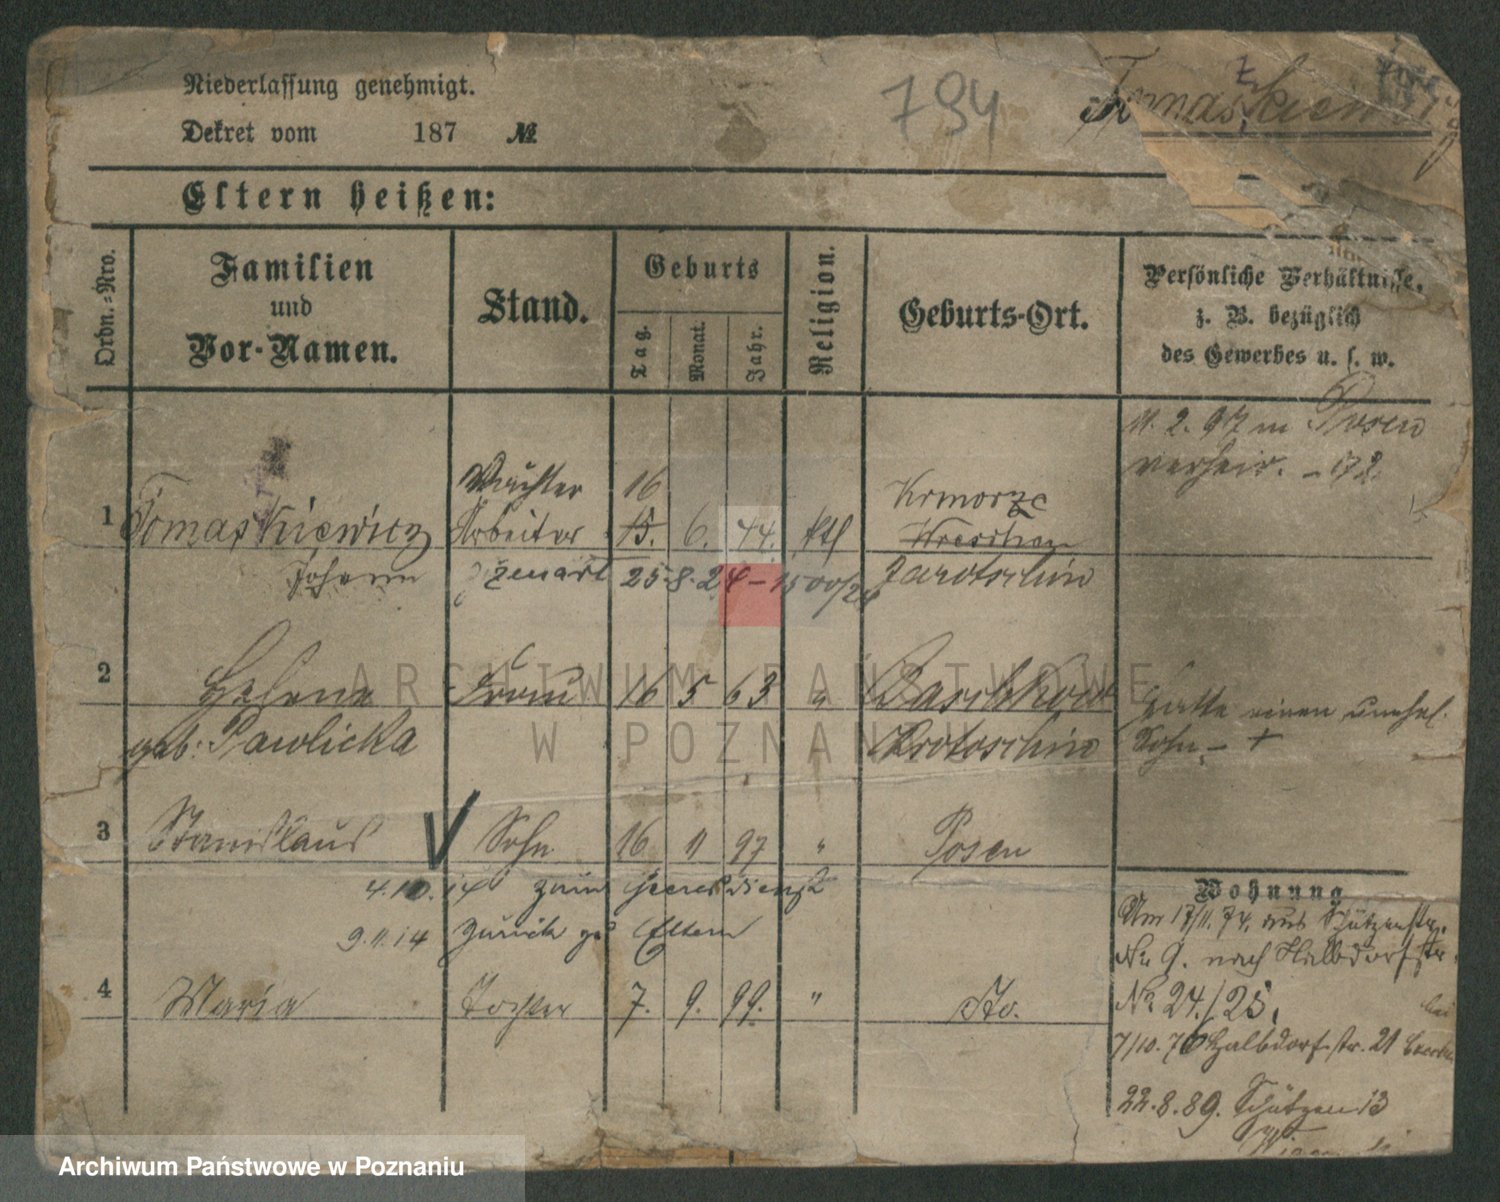 Niederlassung genehmigt.
Dekret vom 187 №
794
Tomaszkiewicz
Eltern heißen:
Ordn.-Nro.
Familien
und
Vor-Namen.
Stand.
Geburts
Tag.
Monat.
Jahr.
Religion.
Geburts-Ort.
Persönliche Verhältnisse,
z. B. bezüglich
des Gewerbes u. s. w.
11. 2. 97 in Posen
verheir.
1 Tomaskiewicz Wächter Arbeiter 16 15. 6. 44. ktl
Johann 25.8.24 - 1500/24 Jarotschin
2 Helena Frau 16 5 63 "
geb: Pawlicka Krotoschin
hatte einen unehel.
Sohn - +
3 Stanislaus V Sohn 16 11 97 " Posen
4.10.14 zum Heeresdienst
9.11.14 zurück zu Eltern
4 Maria Tochter 7. 9. 99. " Do.
Wohnung
Am 17/11. 74. aus Schützenstr.
No 9. nach Halbdorfstr.
No 24./25.
7/10. 76 Halbdorfstr. 21
22.8.89. Schützen 13
ARCHIWUM PAŃSTWOWE
W POZNANIU
Archiwum Państwowe w Poznaniu